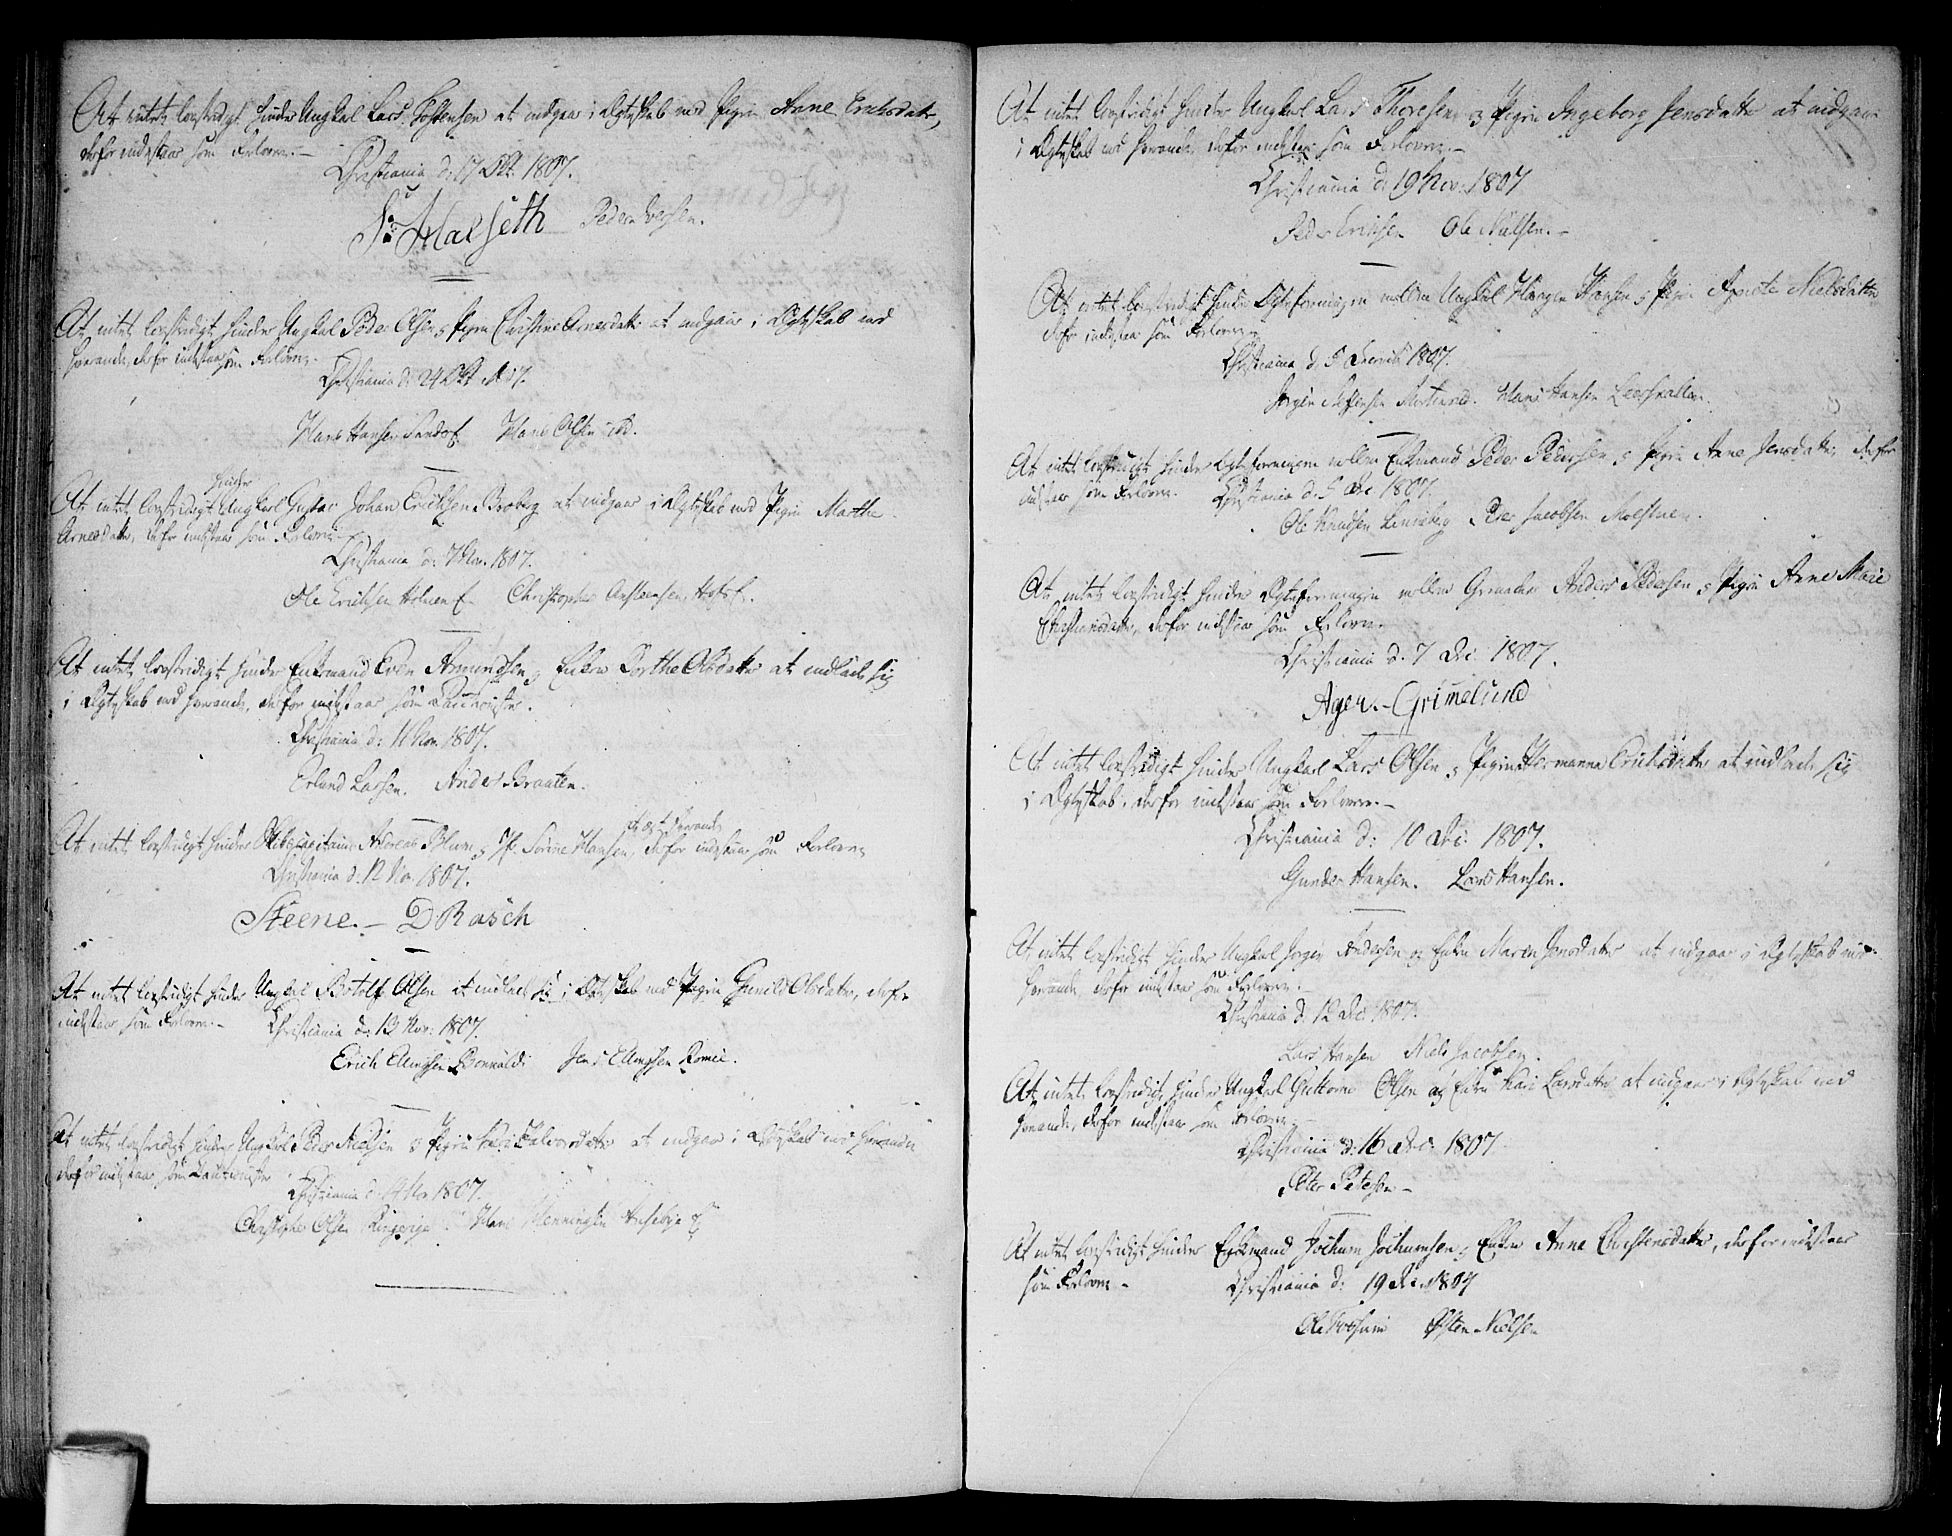 At intet lovstridigt hinder Ungkal Lars Tostensen at indgaae i Ægteskab med Pigen Anne Erichsdatr,
derfor indestaar som Forlovere.
Christiania d: 17 Okt. 1807.
Malseth Peder Iversen.
At intet lovstridigt hinder Ungkal Peder Olsen og Pigen Christine Arnesdatr at indgaae i Ægteskab med
hverandr, derfor indestaar som Forlovere.
Christiania d: 24 Okt. 1807.
Hans Hansen Hans Olsen ibd.
hinder
At intet lovstridigt Ungkarl Gustav Johan Erichsen Broberg at indgaae i Ægteskab med Pigen Marthe
Arnesdatr, derfor indestaar som Forlovere.
Christiania d: 7 Nov. 1807.
Ole Erichsen Holmen Christopher Anstensen
At intet lovstridigt hinder Enkemand Even Amundsen og Enken Dorthe Olsdatr at indlade sig
i Ægteskab med hverandr, derfor indestaar som Cautionister.
Christiania d: 11 Nov. 1807.
Erlund Larsen. Anders Braaten.
med hverandr
At intet lovstridigt hinder Skibscapitain Andreas Blum og Jfr Sorine Hansen, derfor indestaar som Forlovere
Christiania d. 12 Nov 1807.
Steene. – D Rasch
At intet lovstridigt hinder Ungkal Botolf Olsen at indlade sig i Ægteskab med Pigen Gunild Olsdatr, derfor
indestaar som Forlovere. – Christiania d: 13 Nov: 1807.
Erich Jens
At intet lovstridigt hinder Ungkarl Peder Nielsen og Pigen Kari Halvorsdatr at indgaae i Ægteskab med hverandre
derfor indestaar som Cautionister
Christiania d. Nov 1807.
Christopher Olsen Ringerige Hans Henningsen
At intet lovstridigt hinder Ungkarl Lars Thoresen og Pigen Ingeborg Jensdatter at indgaae
i Ægteskab med hverandr, derfor indestaar som Forlovere. –
Christiania d: 19 Nov: 1807
Peder Erichsen Ole Nielsen. –
At intet lovstridigt hinder Ægteforeningen mellem Ungkal Hansen og Pigen Agnete Nielsdatter
derfor indestaar som Forlovere
Christiania d. 5 Decemb 1807.
Jørgen Hans Hansen
At intet lovstridigt hinder Ægteforeningen mellem Enkemand Peder Pedersen og Pigen Anne Jensdatr, derfor
indestaar som Forlovere. Christiania d. 5 Dec 1807.
Ole Knudsen Peder Jacobsen Moestuen.
At intet lovstridigt hinder Ægteforeningen mellem Grenader Anders Pedersen og Pigen Anne Marie
Christensdatr, derfor indestaar som Forlovere.
Christiania d. 7 Dec: 1807.
Ager. – Grimelund
At intet lovstridigt hinder Ungkarl Lars Olsen og Pigen Hermanna Erichsdatr at indlade sig
i Ægteskab, derfor indestaar som Forlovere. –
Christiania d: 10 Dec: 1807.
Gunder Hansen. Lars Hansen.
At intet lovstridigt hinder Ungkal Jørgen Andersen og Enken Maren Jensdatr at indgaae i Ægteskab med
hverandr, derfor indestaar som Forlovere. –
Christiania d. 12 Dec: 1807.
Lars Hansen Niels Jacobsen.
At intet lovstridigt hinder Ungkarl Guttorm Olsen og Enken Kari Larsdatr at indgaae i Ægteskab med
hverandr, derfor indestaar som Forlovere. –
Christiania d: 16 Dec: 1807.
Peter Petersen –
At intet lovstridigt hinder Enkemand Jochum Jochumsen og Enken Anna Christensdatr, derfor indestaar
som Forlovere – Christiania d: 19 Dec: 1807
Ole Østen Nielsen